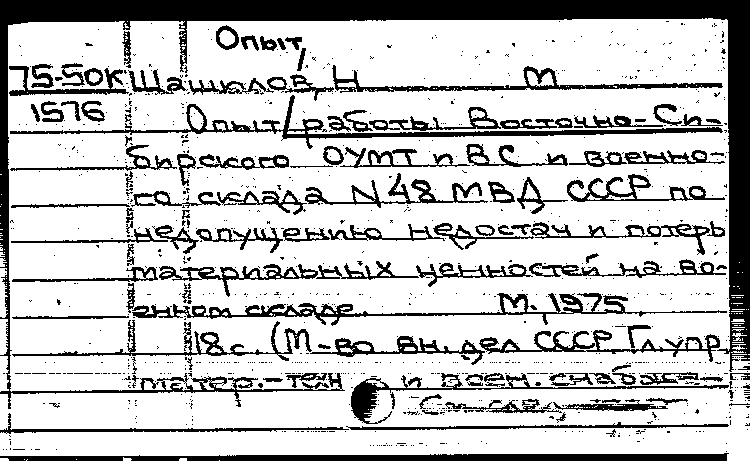 Опыт
75-50К Шашклов, Н М
1576 Опыт/работы Восточно-Си-
бирского ОУМТ и ВС и военно-
го склада N 48 МВД СССР по
недопущению недостач и потерь
материальных ценностей на во-
енном складе. М., 1975.
18 с. (М-во вн. дел СССР. Гл. упр
матер.-техн и воен. снабже-
См след